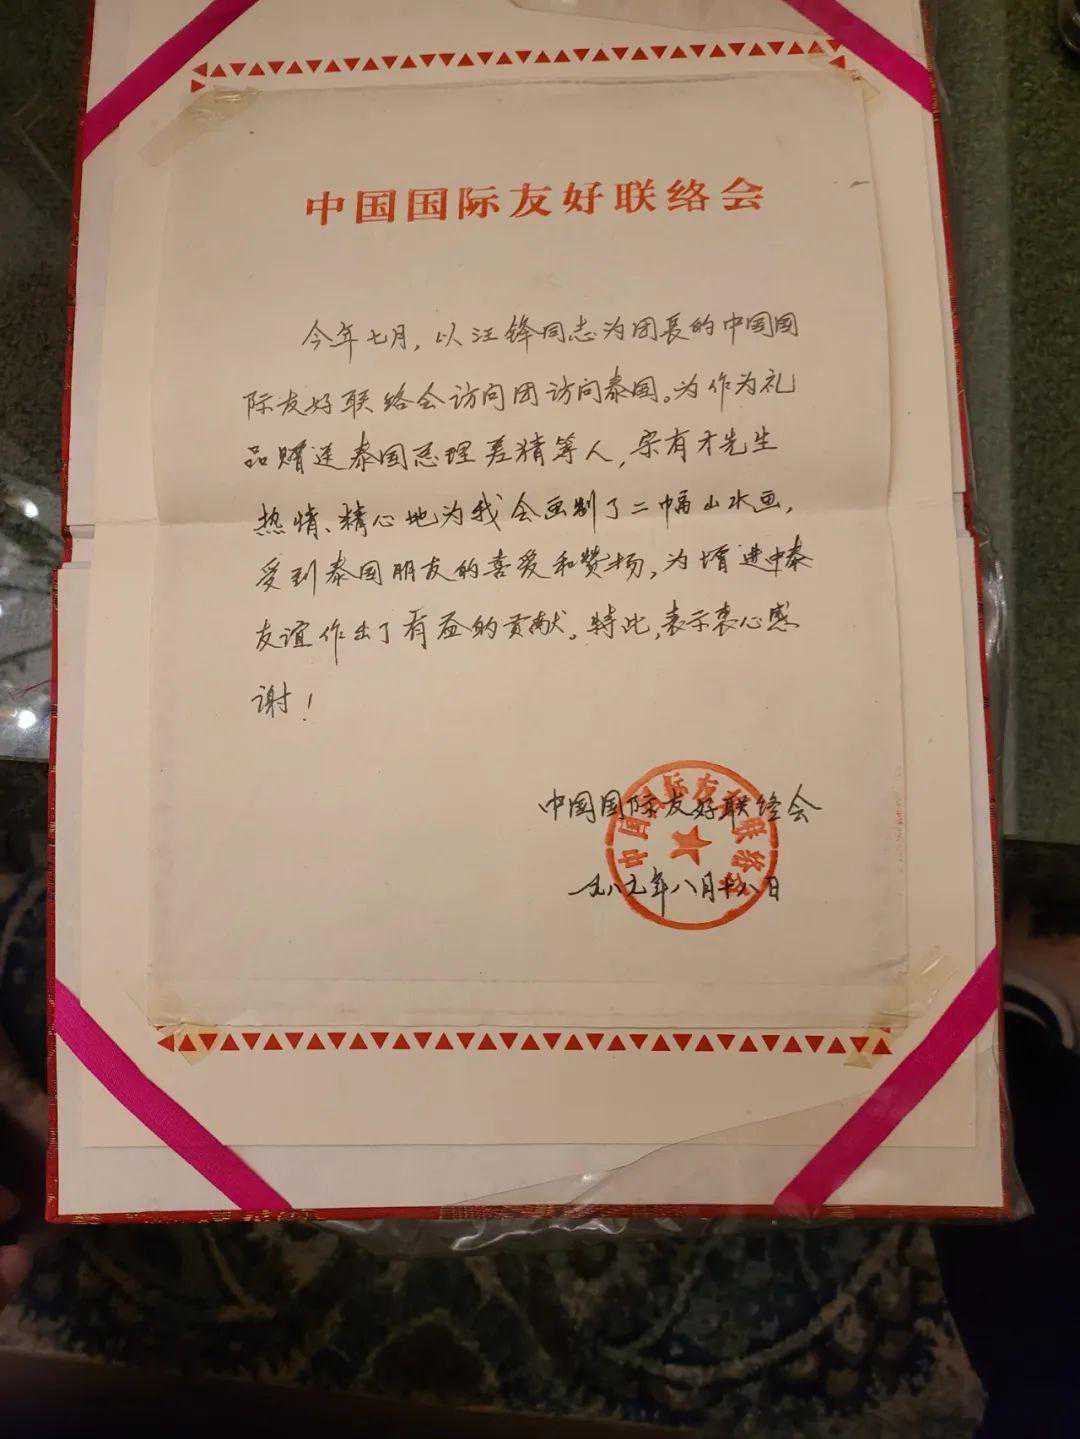 中国国际友好联络会
今年七月，以汪锋同志为团长的中国国
际友好联络会访问团访问泰国。为作为礼
品赠送泰国总理差猜等人，宗有才先生
热情、精心地为我会画制了二幅山水画，
受到泰国朋友的喜爱和赞扬，为增进中泰
友谊作出了有益的贡献。特此，表示衷心感
谢！
中国国际友好联络会
一九八九年八月十八日
中国国际友好联络会